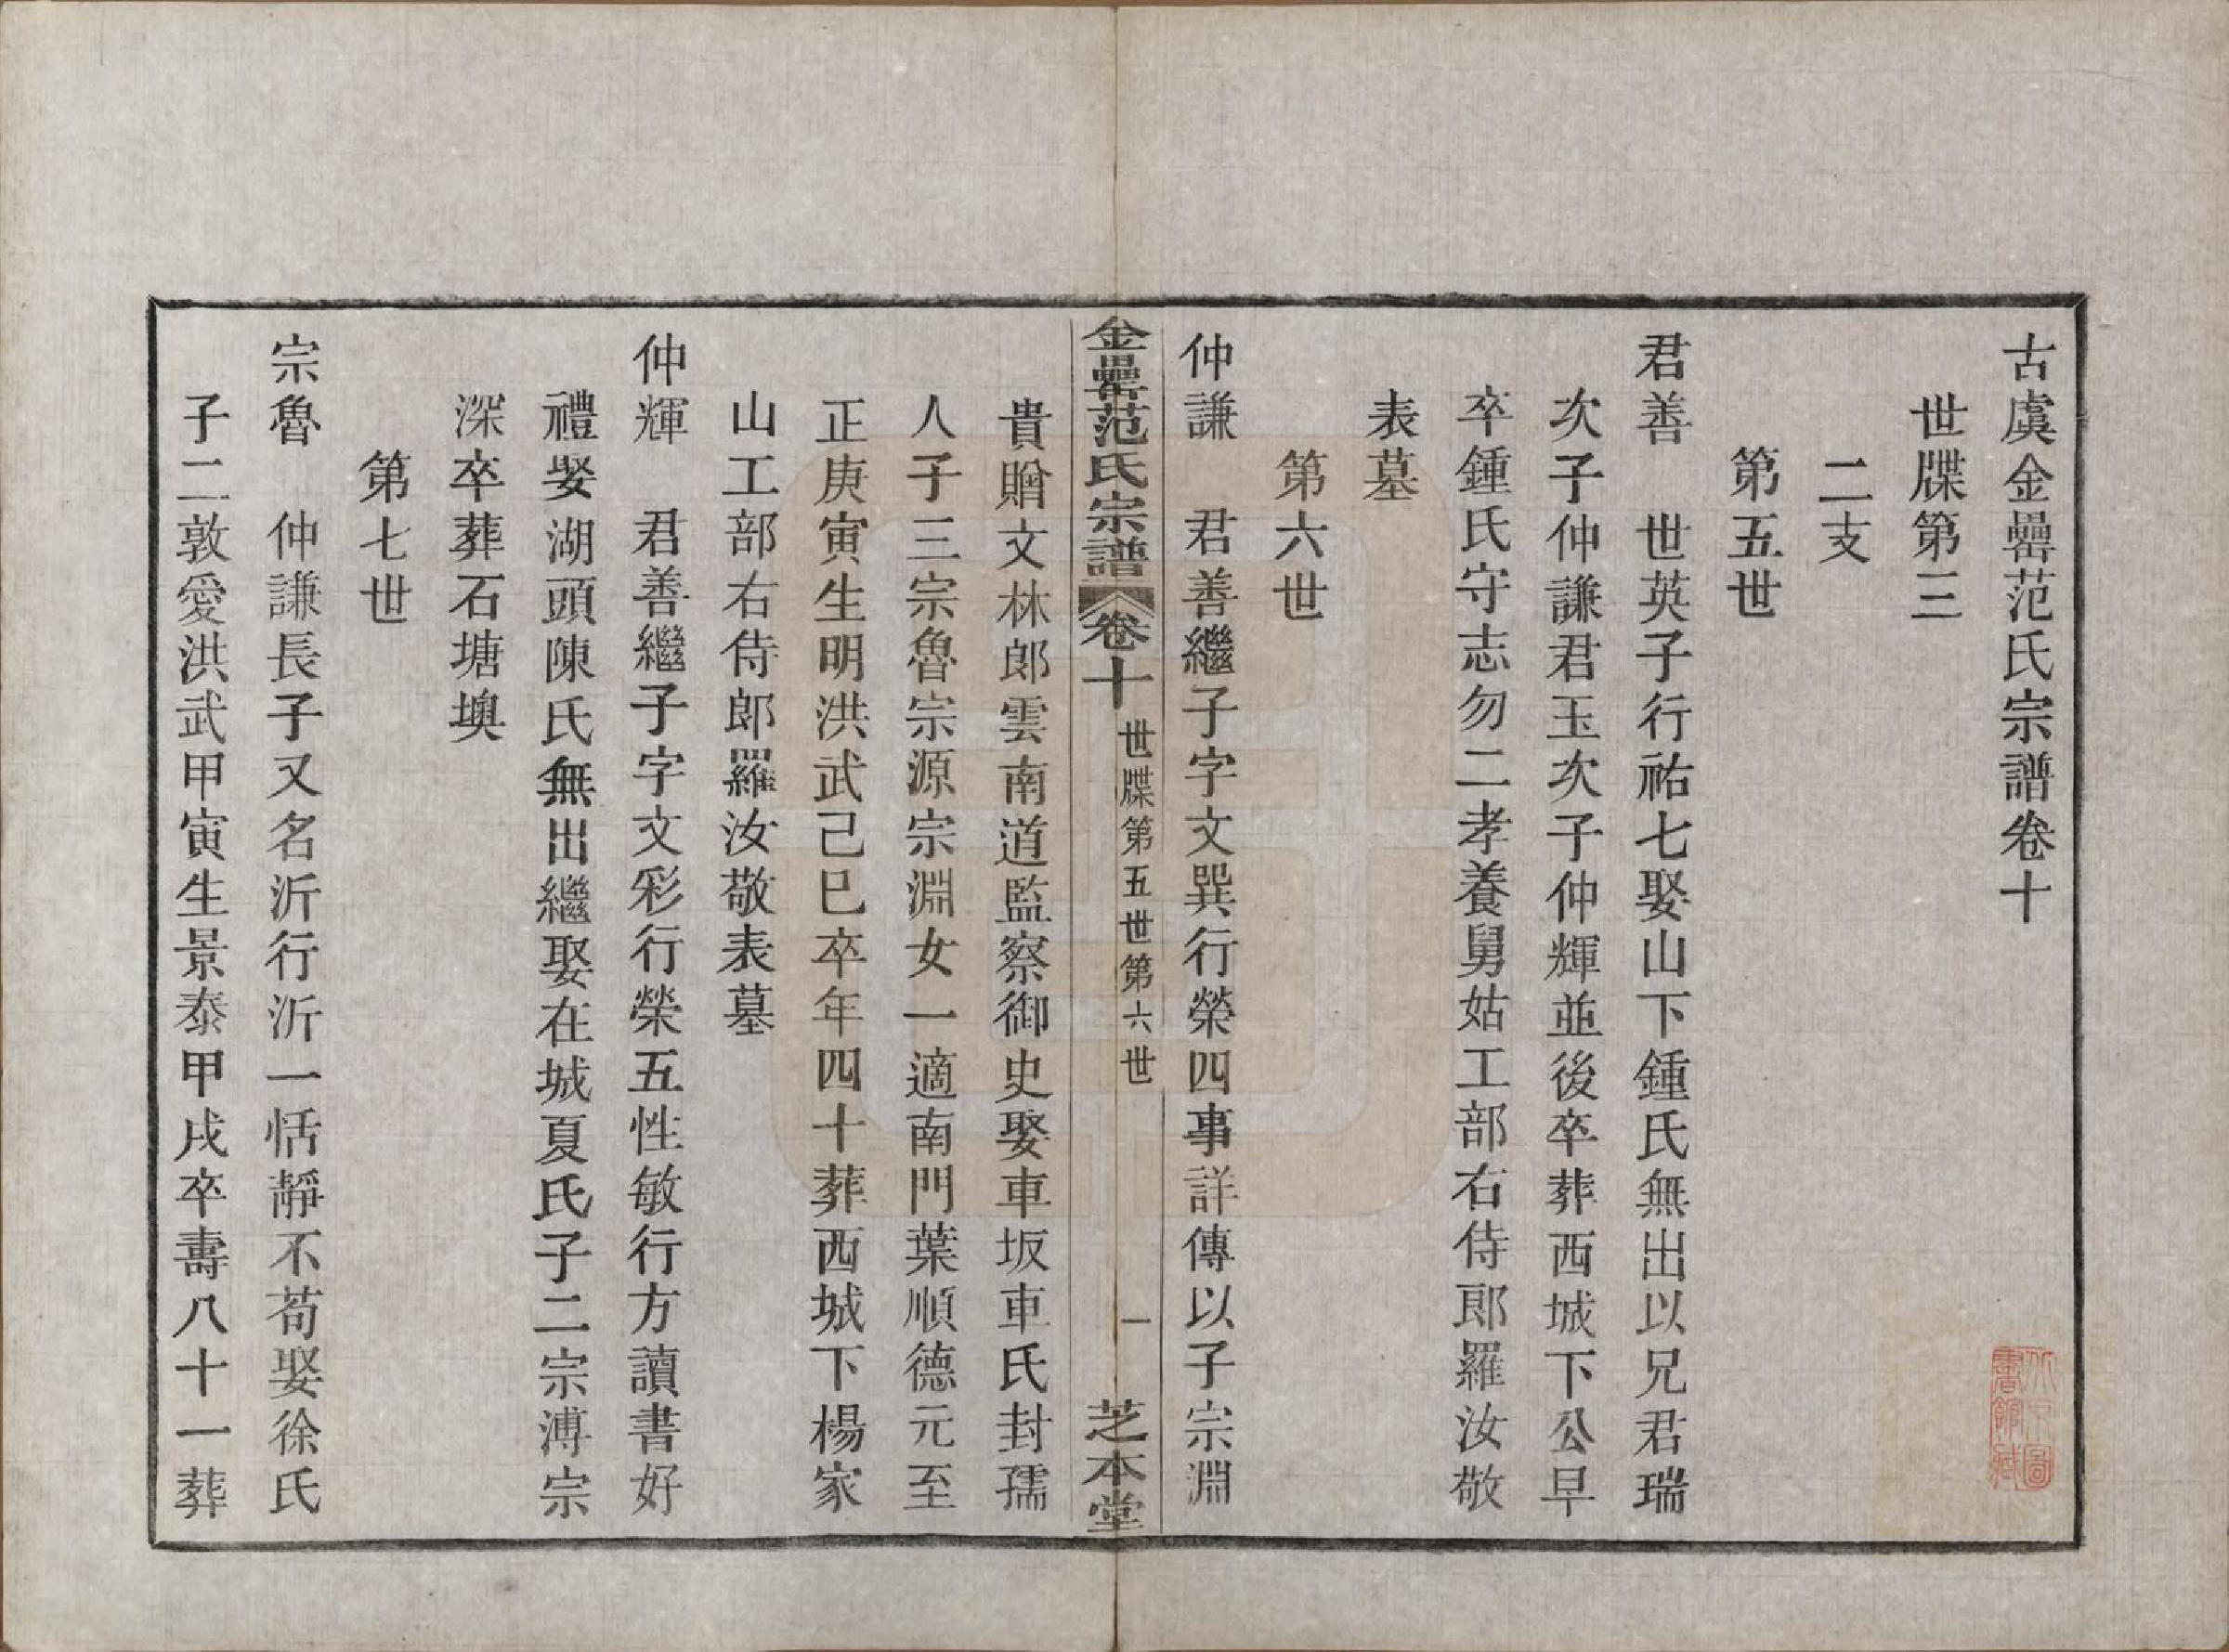 古虞金罍范氏宗譜卷十
世牒第三
二支
第五世
君善　世英子行祐七娶山下鍾氏無出以兄君瑞
次子仲謙君玉次子仲輝並後卒葬西城下公早
卒鍾氏守志勿二孝養舅姑工部右侍郎羅汝敬
表墓
第六世
仲謙　君善繼子字文巽行榮四事詳傳以子宗淵
金罍范氏宗譜　卷十　世牒第五世第六世　一　芝本堂
貴贈文林郎雲南道監察御史娶車坂車氏封孺
人子三宗魯宗源宗淵女一適南門葉順德元至
正庚寅生明洪武己巳卒年四十葬西城下楊家
山工部右侍郎羅汝敬表墓
仲輝　君善繼子字文彩行榮五性敏行方讀書好
禮娶湖頭陳氏無出繼娶在城夏氏子二宗溥宗
深卒葬石塘墺
第七世
宗魯　仲謙長子又名沂行沂一恬靜不苟娶徐氏
子二敦愛洪武甲寅生景泰甲戌卒壽八十一葬
北京圖書館藏